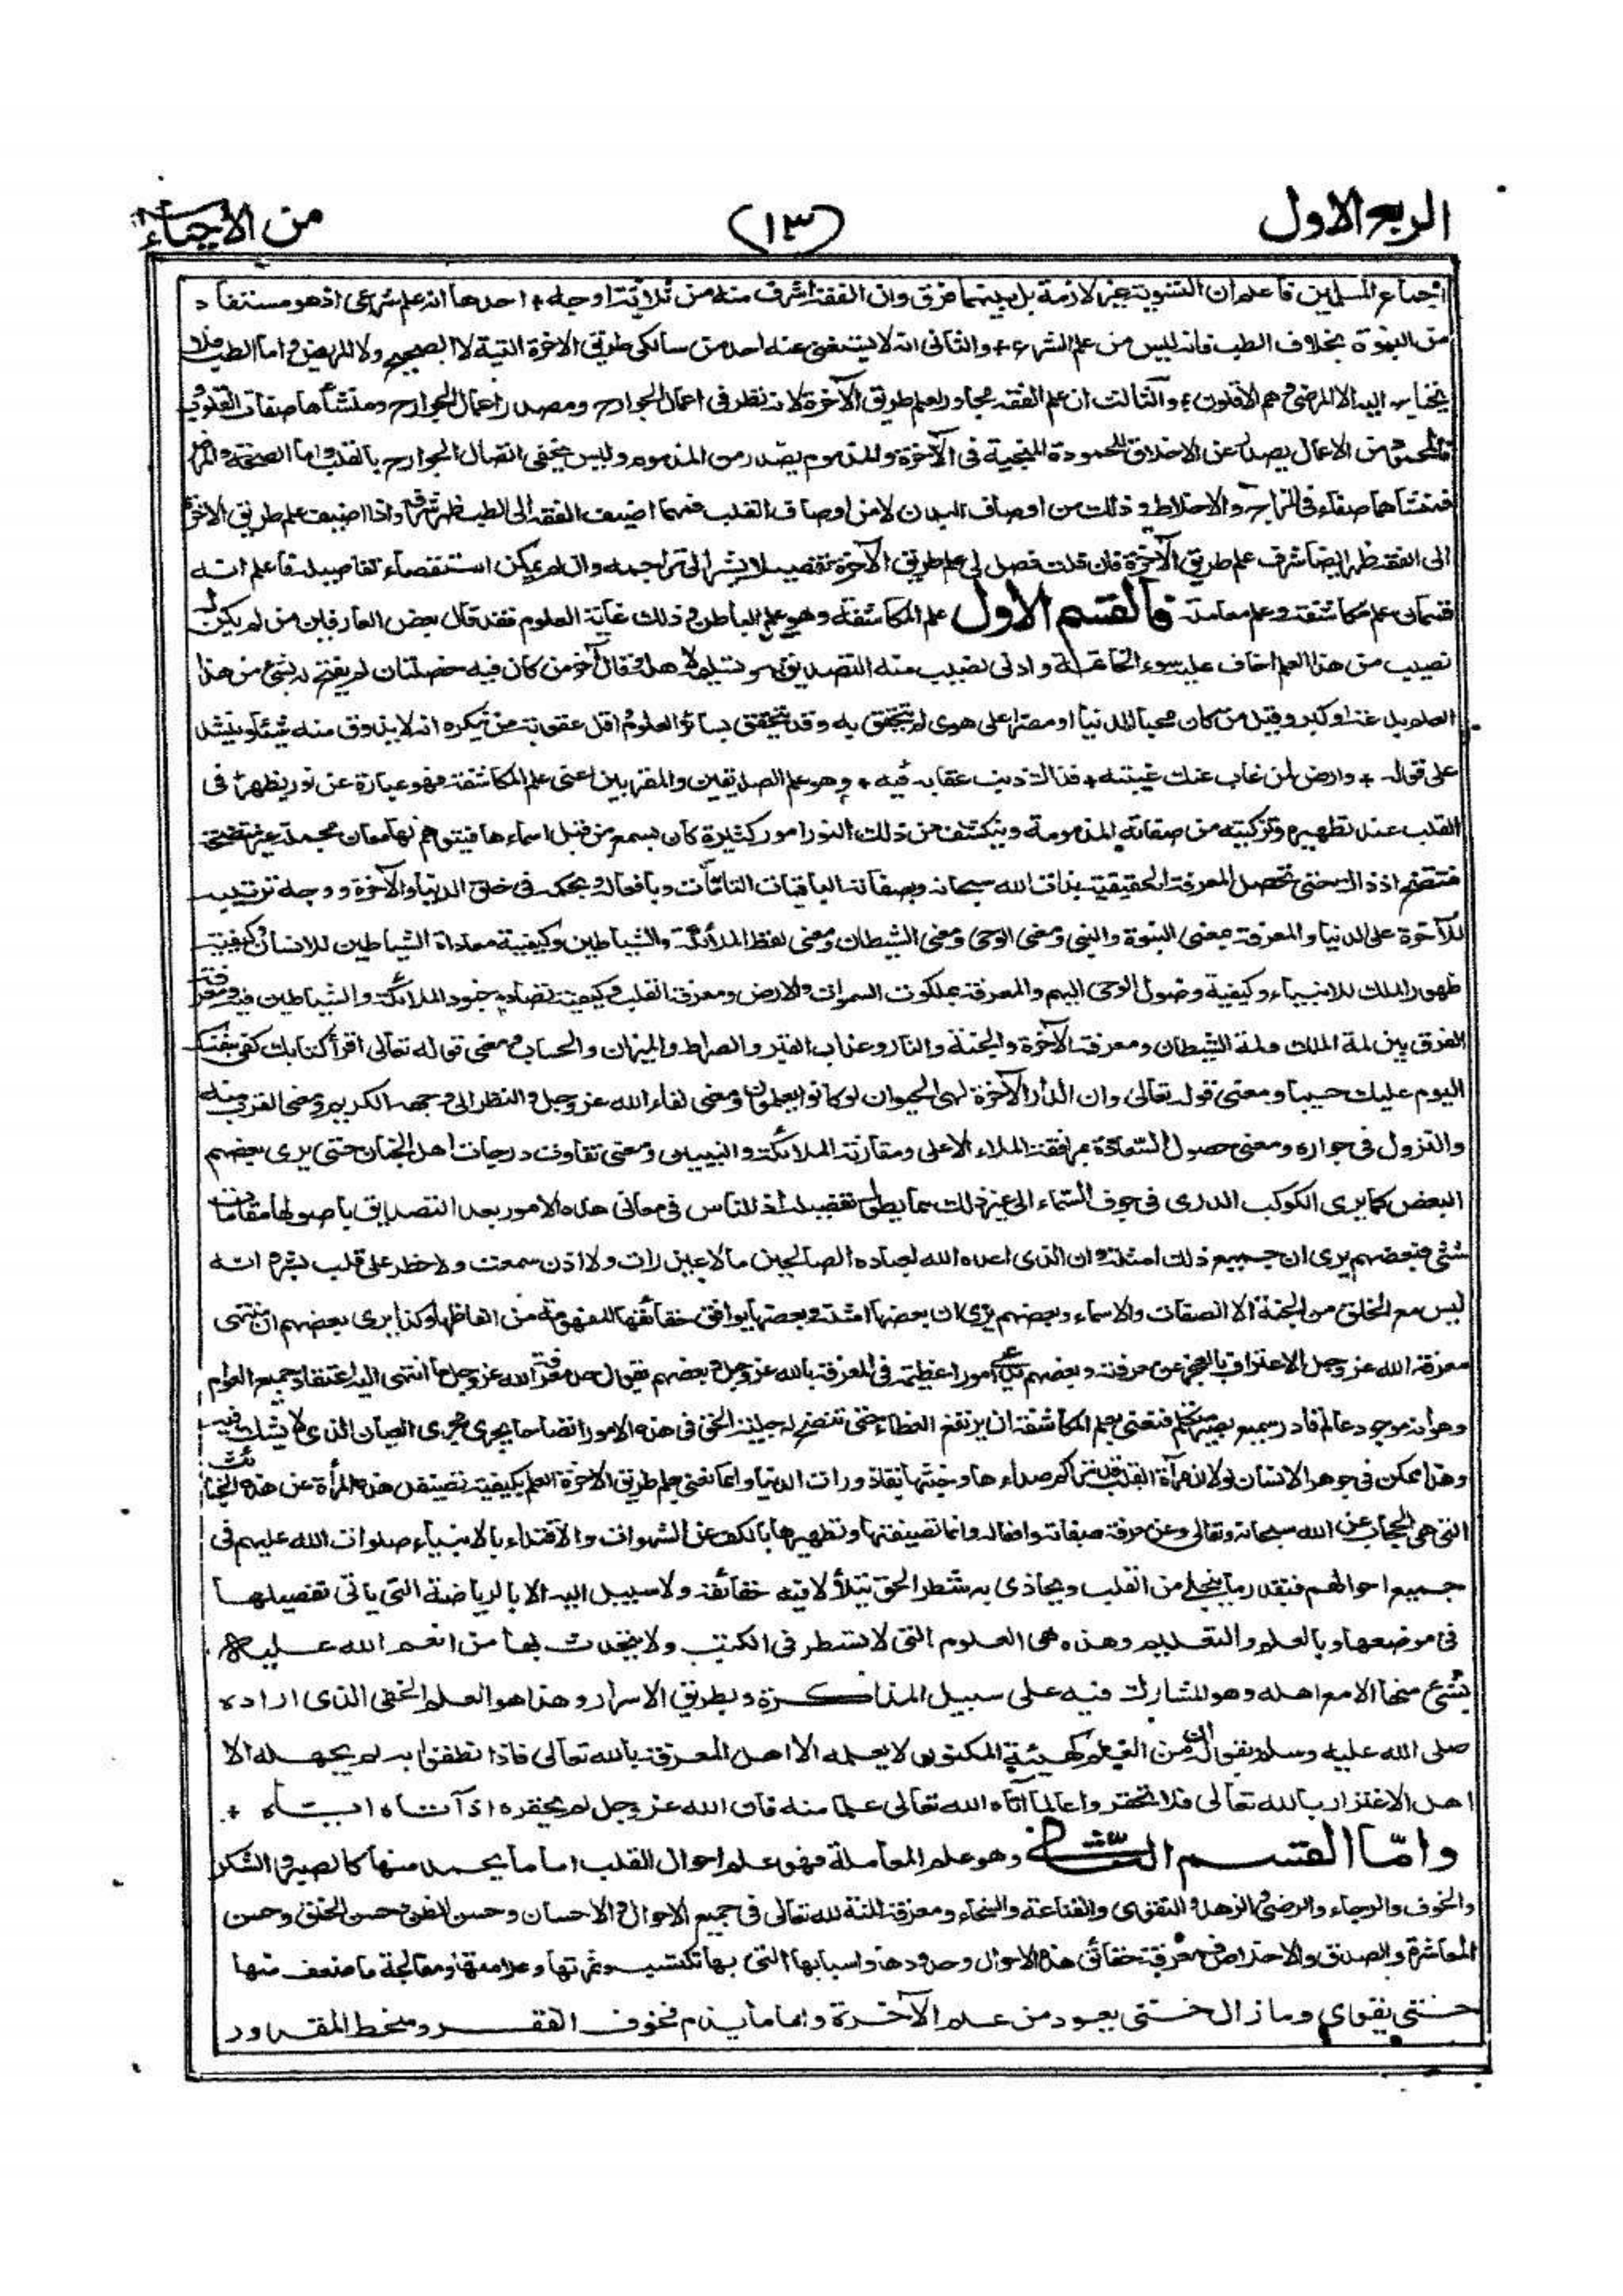 الربع الاول
(١٣)
من الأحياء
اجماع المسلمين فاعلم ان التسوية غير لازمة بل بينهما فرق وان الفقه اشرف منه من ثلاثة اوجه + احدها انه علم شرعى اذ هو مستفاد
من النبوة بخلاف الطب فانه ليس من علم الشرع + والثانى انه لا يستغنى عنه احد من سالكى طريق الاخرة البتة لا الصحيح ولا المريض واما الطب فلا
يحتاج اليه الا المرضى وهم الاقلون + والثالث ان علم الفقه مجاور لعلم طريق الآخرة لانه نظر فى اعمال الجوارح ومصدر اعمال الجوارح ومنشأها صفات القلوب
فالمحمود من الاعمال يصدر عن الاخلاق المحمودة المنجية فى الآخرة والمذموم يصدر من المذموم وليس يخفى اتصال الجوارح بالقلب واما الصحة والمرض
فمنشأهما صفاء فى المزاج والاخلاط و ذلك من اوصاف البدن لا من اوصاف القلب فمهما اضيف الفقه الى الطب ظهر شرفه واذا اضيف علم طريق الاخرة
الى الفقه ظهر ايضا شرف علم طريق الآخرة فان قلت فصل لى علم طريق الآخرة تفصيلا يشير الى تراجمه وان لم يمكن استقصاء تفاصيله فاعلم انه
قسمان علم مكاشفة وعلم معاملة فالقسم الاول علم المكاشفة وهو علم الباطن وذلك غاية العلوم فقد قال بعض العارفين من لم يكن له
نصيب من هذا العلم اخاف عليه سوء الخاتمة و ادنى نصيب منه التصديق به وتسليمه لاهله وقال آخر من كان فيه خصلتان لم يفتح له بشئ من هذا
العلم بدعة او كبر وقيل من كان محبا للدنيا او مصرا على هوى لم يتحقق به وقد يتحقق بسائر العلوم واقل عقوبة من ينكره انه لا يذوق منه شيئا وينشد
على قوله + وارض لمن غاب عنك غيبته + فذاك ذنب عقابه فيه + وهو علم الصديقين والمقربين اعنى علم المكاشفة فهو عبارة عن نور يظهر فى
القلب عند تطهيره وتزكيته من صفاته المذمومة وينكشف من ذلك النور امور كثيرة كان يسمع من قبل اسماءها فيتوهم لها معان مجملة غير متضحة
فتتضح اذ ذاك حتى تحصل المعرفة الحقيقية بذات الله سبحانه وبصفاته الباقيات التامات وبافعاله وبحكمه فى خلق الدنيا والآخرة ووجه ترتيبه
للآخرة على الدنيا والمعرفة بمعنى النبوة والنبى ومعنى الوحى ومعنى الشيطان ومعنى لفظ الملائكة والشياطين وكيفية معاداة الشياطين للانسان وكيفية
ظهور الملك للانبياء وكيفية وصول الوحى اليهم والمعرفة بملكوت السموات والارض ومعرفة القلب وكيفية تصادم جنود الملائكة والشياطين فيه ومعرفة
الفرق بين لمة الملك ولمة الشيطان ومعرفة الآخرة والجنة والنار وعذاب القبر والصراط والميزان والحساب ومعنى قوله تعالى اقرأ كتابك كفى بنفسك
اليوم عليك حسيبا ومعنى قوله تعالى وان الدار الآخرة لهى الحيوان لو كانوا يعلمون ومعنى لقاء الله عز وجل والنظر الى وجهه الكريم ومعنى القرب منه
والنزول فى جواره ومعنى حصول السعادة بمرافقة الملاء الاعلى ومقارنة الملائكة والنبيين ومعنى تفاوت درجات اهل الجنان حتى يرى بعضهم
البعض كما يرى الكوكب الدرى فى جوف السماء الى غير ذلك مما يطول تفصيله اذ للناس فى معانى هذه الامور بعد التصديق باصولها مقامات
شتى فبعضهم يرى ان جميع ذلك امثلة وان الذى اعده الله لعباده الصالحين ما لا عين رات ولا اذن سمعت ولا خطر على قلب بشر وانه
ليس مع الخلق من الجنة الا الصفات والاسماء وبعضهم يرى ان بعضها امثلة وبعضها يوافق حقائقها المفهومة من الفاظها وكذا يرى بعضهم ان منتهى
معرفة الله عز وجل الاعتراف بالعجز عن معرفته وبعضهم يدعى امورا عظيمة فى المعرفة بالله عز وجل وبعضهم يقول حد معرفة الله عز وجل ما انتهى اليه اعتقاد جميع العوام
وهو انه موجود عالم قادر سميع بصير متكلم فنعنى بعلم المكاشفة ان يرتفع الغطاء حتى تتضح له جلية الحق فى هذه الامور اتضاحا يجرى مجرى العيان الذى لا يشك فيه
وهذا ممكن فى جوهر الانسان لولا ان مرآة القلب قد تراكم صداءها وخبثها بقاذورات الدنيا وانما نعنى بعلم طريق الاخرة العلم بكيفية تصقيل هذه المرأة عن هذه الخبائث
التى هى الحجاب عن الله سبحانه وتعالى وعن معرفة صفاته وافعاله وانما تصفيتها وتطهيرها بالكف عن الشهوات والاقتداء بالانبياء صلوات الله عليهم فى
جميع احوالهم فبقدر ما ينجلى من القلب ويحاذى به شطر الحق يتلألأ فيه حقائقه ولا سبيل اليه الا بالرياضة التى ياتى تفصيلها
فى موضعها وبالعلم والتعليم وهذه هى العلوم التى لا تسطر فى الكتب ولا يتحدث بها من انعم الله عليه
بشئ منها الا مع اهله وهو المشارك فيه على سبيل المذاكرة وبطريق الاسرار وهذا هو العلم الخفى الذى اراده
صلى الله عليه وسلم بقوله ان من العلم كهيئة المكنون لا يعلمه الا اهل المعرفة بالله تعالى فاذا نطقوا به لم يجهله الا
اهل الاغترار بالله تعالى فلا تحقروا عالما آتاه الله تعالى علما منه فان الله عز وجل لم يحقره اذ آتاه اياه +
واما القسم الثانى وهو علم المعاملة فهو علم احوال القلب اما ما يحمد منها كالصبر والشكر
والخوف والرجاء والرضى والزهد والتقوى والقناعة والسخاء ومعرفة المنة لله تعالى فى جميع الاحوال والاحسان وحسن الظن وحسن الخلق وحسن
المعاشرة والصدق والاخلاص فمعرفة حقائق هذه الاحوال وحدودها واسبابها التى بها تكتسب وثمرتها وعلامتها ومعالجة ما ضعف منها
حتى يقوى وما زال حتى يعود من علم الآخرة واما ما يذم فخوف الفقر وسخط المقدور